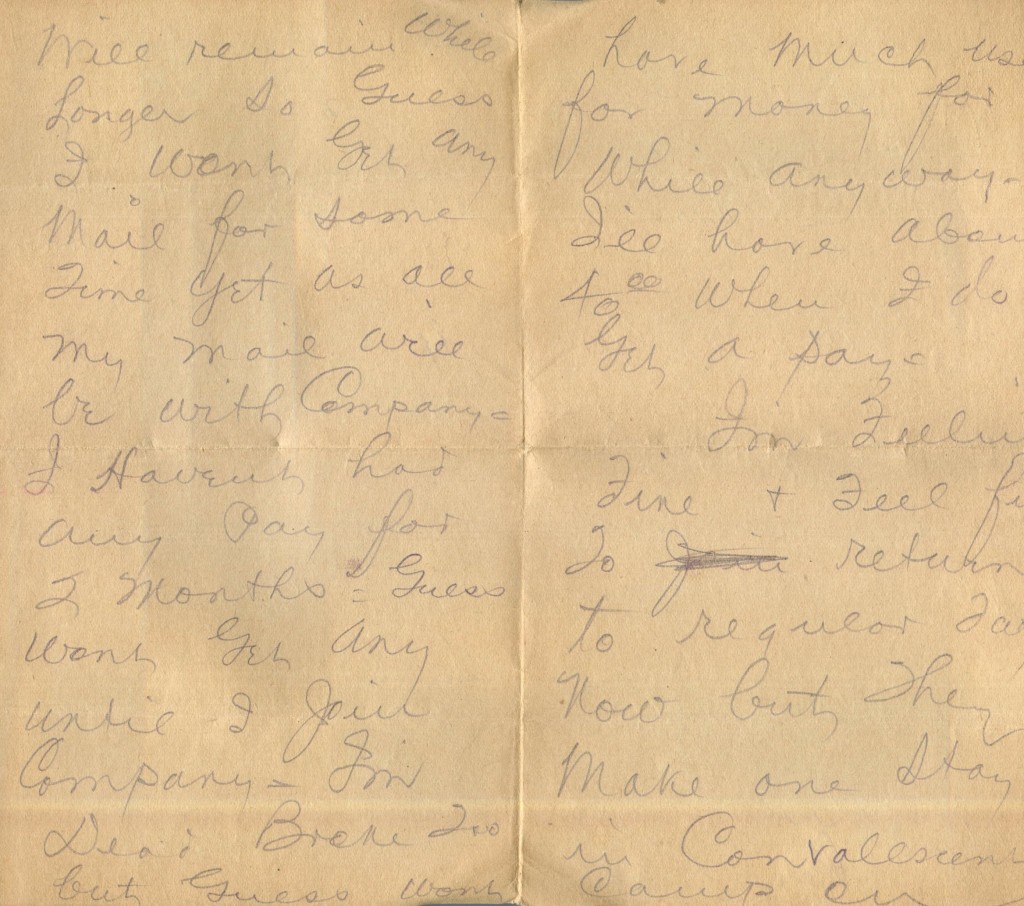 Will remain while
Longer so Guess
I wont Get any
Mail for some
Time yet as all
my mail will
be with Company =
I Havent had
any Pay for
2 Months = Guess
wont Get any
until I Join
Company = Im
Dead Broke Too
but Guess wont
have much use
for money for
While any way -
I'll have about
40 00 When I do
Get a pay =
Im Feelin
Fine + Feel fi
To Join return
to regular
Now but They
Make one stay
in Convalescent
Camp